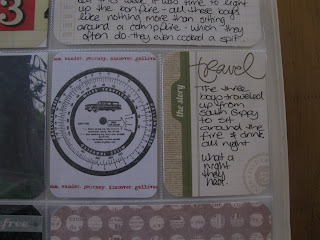 but this week it was time to light
up the bonfire - all these boys
like nothing more than sitting
around a campfire - which they
often do - they even cooked a spit
3
roam. wander. journey. discover. gallivan
roam. wander. journey. discover. gallivan
the story
travel
The three
boys traveled
up from
South Gippy
to sit
around the
fire & drink
all night
What a
night
they
had.
free